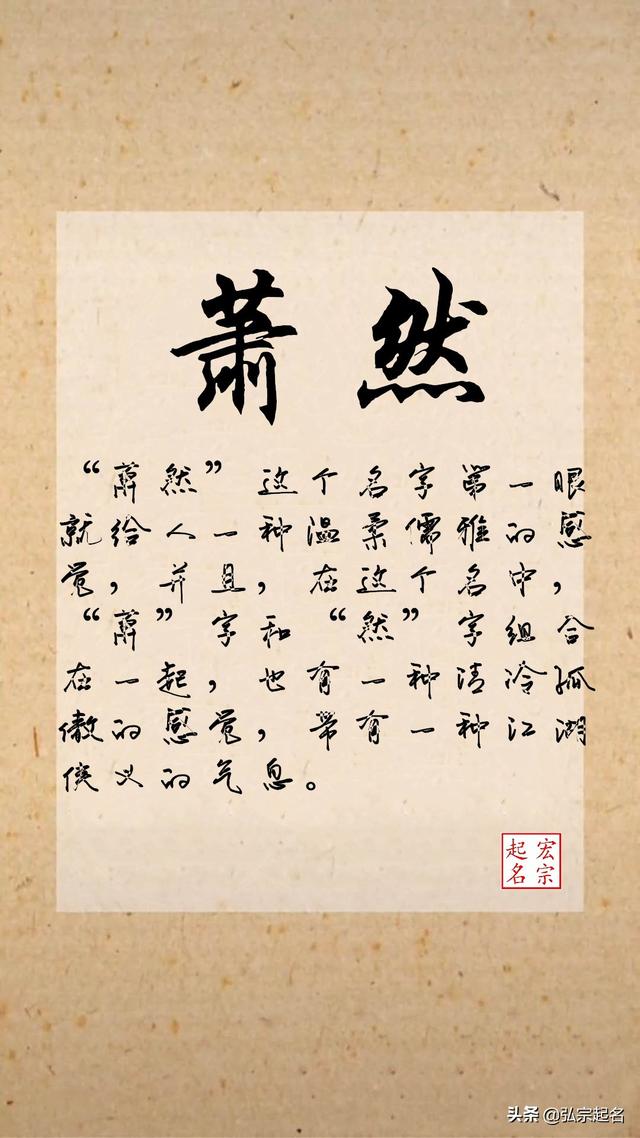 蕭然
“蕭然”这个名字第一眼
就给人一种温柔儒雅的感
觉，并且，在这个名中，
“蕭”字和“然”字组合
在一起，也有一种清冷孤
傲的感觉，带有一种江湖
侠义的气息。
宏宗
起名
头条 @弘宗起名